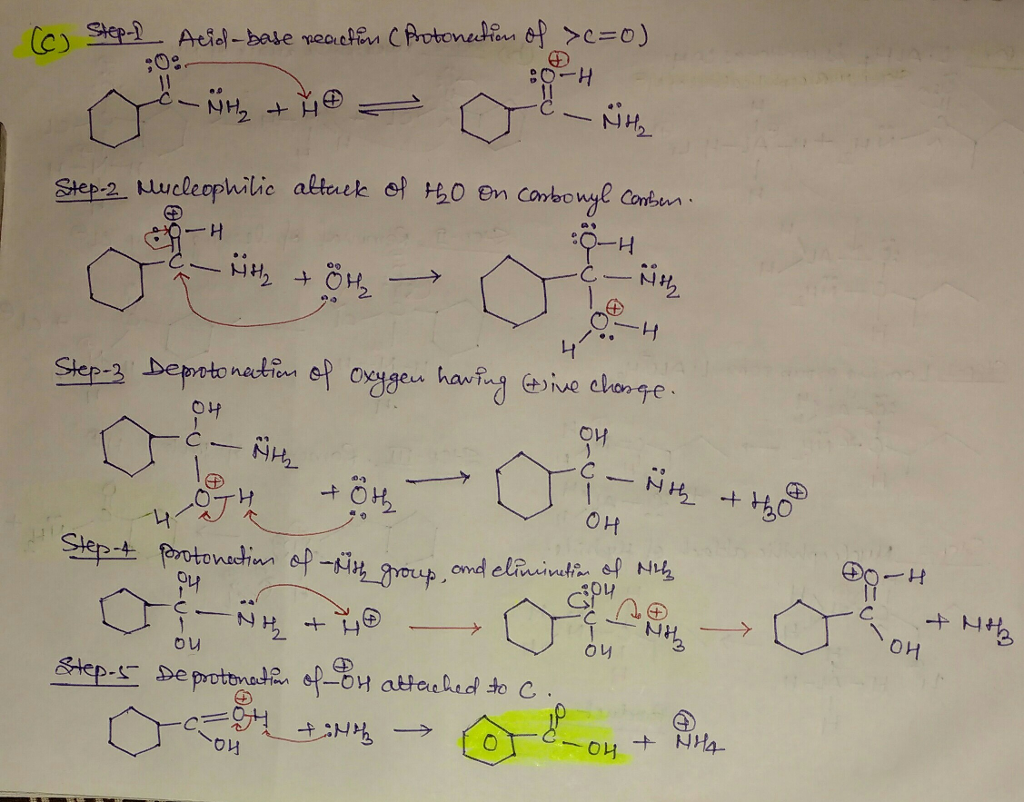 (C) Step-1 Acid-base reaction (Protonation of >C=O)
:O: ⊕
C - N̈H₂ + H⊕ ⇌ :O-H C - N̈H₂
Step-2 Nucleophilic attack of H₂O on carbonyl carbon.
⊕
O-H :Ö-H
C - N̈H₂ + ÖH₂ → C - N̈H₂
⊕
O-H
H
Step-3 Deprotonation of oxygen having (+)ive charge.
OH OH
C - N̈H₂ C - N̈H₂ + H₃O⊕
⊕
H O-H + ÖH₂ → OH
Step-4 protonation of -N̈H₂ group, and elimination of NH₃
OH :OH ⊕O-H
C - N̈H₂ + H⊕ → C - NH₃⊕ → C OH + NH₃
OH OH
Step-5 Deprotonation of -O⊕H attached to C.
⊕
C=OH + :NH₃ → O C - OH + ⊕NH₄
OH